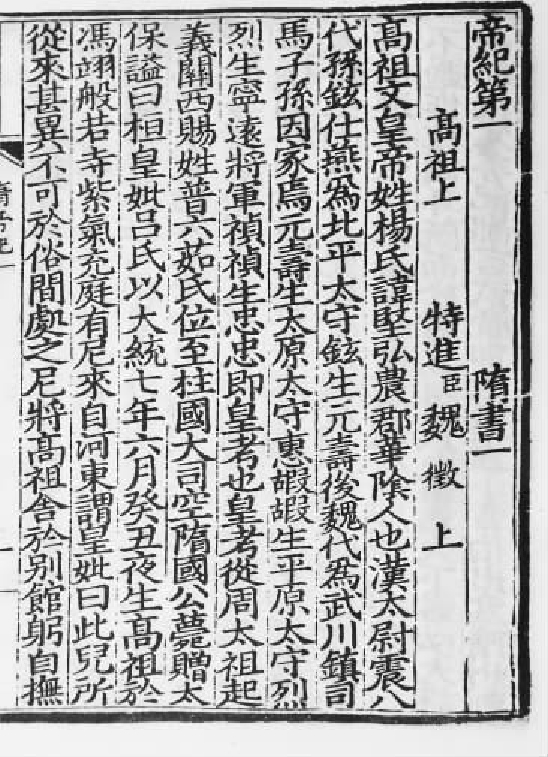 帝紀第一 隋書一
髙祖上 特進臣魏徵上
髙祖文皇帝姓楊氏諱堅弘農郡華陰人也漢太尉震八
代孫鉉仕燕為北平太守鉉生元壽後魏代為武川鎮司
馬子孫因家焉元壽生太原太守惠嘏嘏生平原太守烈
烈生寧遠將軍禎禎生忠忠即皇考也皇考從周太祖起
義關西賜姓普六茹氏位至柱國大司空隋國公薨贈太
保謚曰桓皇妣吕氏以大統七年六月癸丑夜生髙祖於
馮翊般若寺紫氣充庭有尼來自河東謂皇妣曰此兒所
從來甚異不可於俗間處之尼將髙祖舎於別館躬自撫